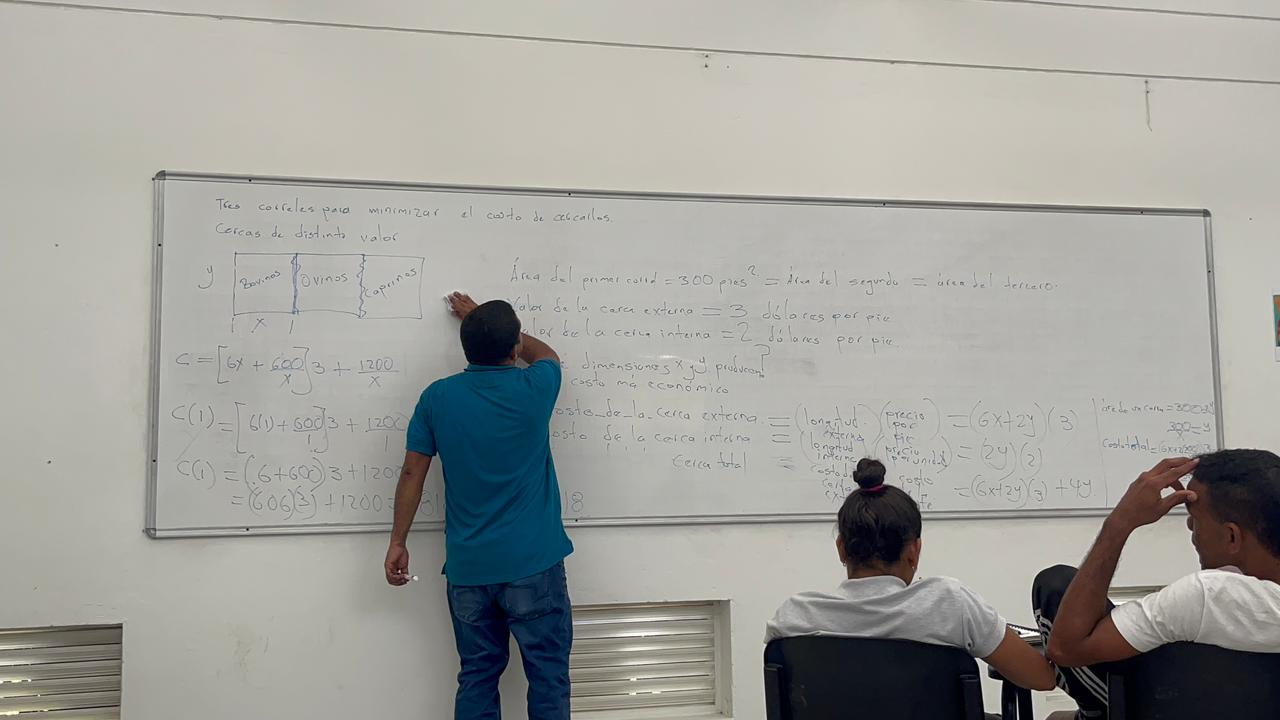 Tres correles para minimizar el costo de cercarlos.
Cercas de distinto valor
y
Bovinos Ovinos Caprinos
x
C = [6x + 600/x]3 + 1200/x
C(1) = [6(1) + 600/1]3 + 1200/1
C(1) = (6+600)3 + 1200
= (606)(3) + 1200 =
18
Área del primer corral = 300 pies² = área del segundo = área del tercero.
Valor de la cerca externa = 3 dólares por pie
de la cerca interna = 2 dólares por pie.
dimensiones x y y producen?
costo más económico
costo de la cerca externa = (longitud externa)(precio por pie) = (6x+2y)(3)
costo de la cerca interna = (longitud interna)(precio por unidad) = (2y)(2)
Cerca total = = (6x+2y)(3) + 4y
300 = y
Costo total =